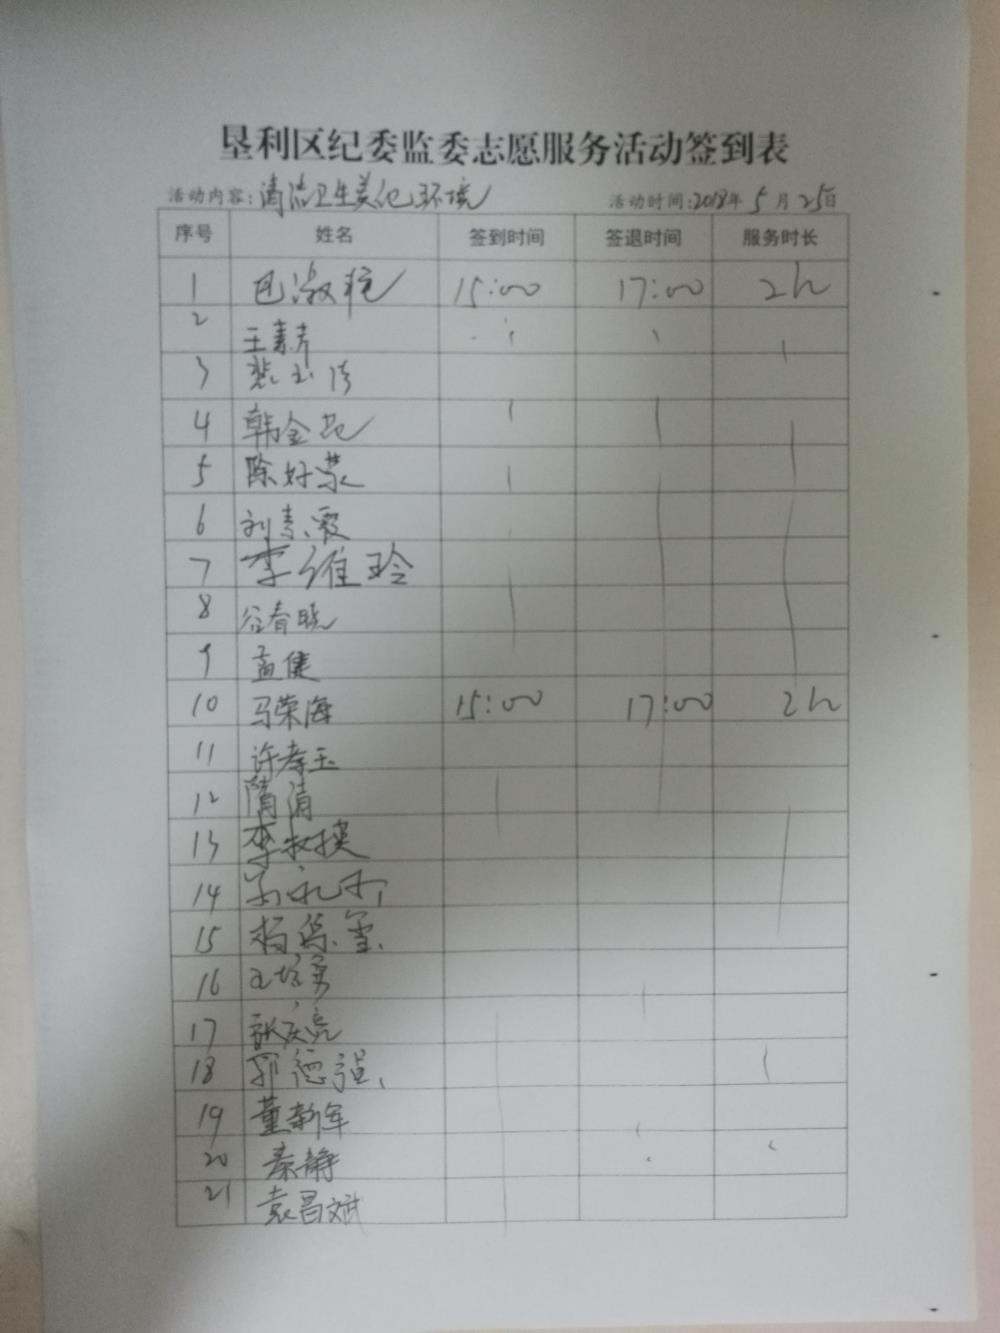 垦利区纪委监委志愿服务活动签到表
活动内容:清洁卫生美化环境 活动时间:2018年5月25日
序号 姓名 签到时间 签退时间 服务时长
1 巴淑 15:00 17:00 2h
2 王素芳
3
4 韩金花
5 陈好蒙
6 刘青霞
7 李维玲
8 谷春晓
9 孟健
10 马荣海 15:00 17:00 2h
11 许孝玉
12 隋清
13 李
14
15 杨
16
17 张庆亮
18 郭德强
19 董新军
20 秦静
21 袁昌斌